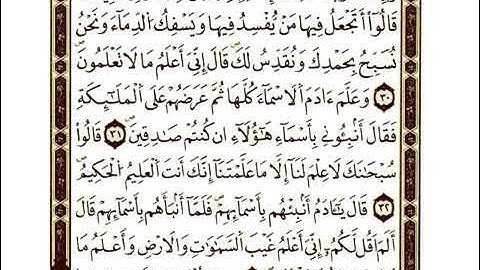 قَالُوٓا۟ أَتَجْعَلُ فِيهَا مَنْ يُّفْسِدُ فِيهَا وَيَسْفِكُ الدِّمَآءَ وَنَحْنُ
نُسَبِّحُ بِحَمْدِكَ وَنُقَدِّسُ لَكَ قَالَ إِنِّيَ أَعْلَمُ مَا لَا تَعْلَمُونَ
٣٠ وَعَلَّمَ ءَادَمَ اَلَاسْمَآءَ كُلَّهَا ثُمَّ عَرَضَهُمْ عَلَى اَلْمَلَٰٓئِكَةِ
فَقَالَ أَنۢبِـُٔونِي بِأَسْمَآءِ هَٰٓؤُلَآءِ ان كُنتُمْ صَٰدِقِينَ ٣١ قَالُوا۟
سُبْحَٰنَكَ لَا عِلْمَ لَنَآ إِلَّا مَا عَلَّمْتَنَآ إِنَّكَ أَنتَ اَلْعَلِيمُ اُلْحَكِيمُ
٣٢ قَالَ يَٰٓـَٔادَمُ أَنۢبِئْهُم بِأَسْمَآئِهِمْ فَلَمَّآ أَنۢبَأَهُم بِأَسْمَآئِهِمْ قَالَ
أَلَمَ اَقُل لَّكُمُۥٓ إِنِّيَ أَعْلَمُ غَيْبَ اَلسَّمَٰوَٰتِ وَالَارْضِ وَأَعْلَمُ مَا